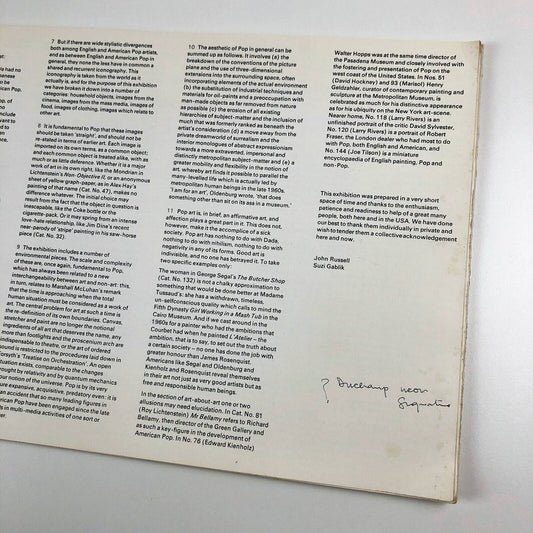 He had no
to be
of Pop,
and
7 But if there are wide stylistic divergences
both among English and American Pop artists,
and as between English and American Pop in
general, they none the less have in common a
shared and recurrent iconography. This
iconography is taken from the world as it
actually is, and for the purpose of this exhibition
we have broken it down into a number of
categories: household objects, images from the
cinema, images from the mass media, images of
food, images of clothing, images which relate to
other art.
8 It is fundamental to Pop that these images
should be taken 'straight', and should not be
re-stated in terms of earlier art. Each image is
imported on its own terms, as a common object;
and each common object is treated alike, with as
much or as little deference. Whether it is a major
work of art in its own right, like the Mondrian in
Lichtenstein's Non-Objective II, or an anonymous
sheet of yellow graph-paper, as in Alex Hay's
painting of that name (Cat. No. 47), makes no
difference whatever. The initial choice may
result from the fact that the object in question is
inescapable, like the Coke bottle or the
cigarette-pack. Or it may spring from an intense
love-hate relationship, like Jim Dine's recent
near-parody of 'stripe' painting in his saw-horse
piece (Cat. No. 32).
9 The exhibition includes a number of
environmental pieces. The scale and complexity
of these are, once again, fundamental to Pop,
which has always been related to a new
interchangeability between art and non-art: this,
in turn, relates to Marshall McLuhan's remark
that the time is approaching when the total
human situation must be considered as a work of
art. The central problem for art at such a time is
the re-definition of its own boundaries. Canvas,
stretcher and paint are no longer the notional
ingredients of all art that deserves the name, any
more than footlights and the proscenium arch are
indispensable to theatre, or the art of ordered
sound is restricted to the procedures laid down in
Forsyth's 'Treatise on Orchestration'. An open
situation exists, comparable to the changes
brought by relativity and by quantum mechanics
our notion of the universe. Pop is by its very
nature expansive, acquisitive, predatory even: it is
an accident that so many leading figures in
American Pop have been engaged since the late
in multi-media activities of one sort or
10 The aesthetic of Pop in general can be
summed up as follows. It involves (a) the
breakdown of the conventions of the picture
plane and the use of three-dimensional
extensions into the surrounding space, often
incorporating elements of the actual environment
(b) the substitution of industrial techniques and
materials for oil-paints and a preoccupation with
man-made objects as far removed from nature
as possible (c) the erosion of all existing
hierarchies of subject-matter and the inclusion of
much that was formerly ranked as beneath the
artist's consideration (d) a move away from the
private dreamworld of surrealism and the
interior monologues of abstract expressionism
towards a more extraverted, impersonal and
distinctly metropolitan subject-matter and (e) a
greater mobility and flexibility in the notion of
art, whereby art finds it possible to parallel the
many-levelled life which is actually led by
metropolitan human beings in the late 1960s.
'I am for an art', Oldenburg wrote, 'that does
something other than sit on its ass in a museum.'
11 Pop art is, in brief, an affirmative art, and
affection plays a great part in it. This does not,
however, make it the accomplice of a sick
society. Pop art has nothing to do with Dada,
nothing to do with nihilism, nothing to do with
negativity in any of its forms. Good art is
indivisible, and no one has betrayed it. To take
two specific examples only:
The woman in George Segal's The Butcher Shop
(Cat. No. 132) is not a chalky approximation to
something that would be done better at Madame
Tussaud's: she has a withdrawn, timeless,
un-selfconscious quality which calls to mind the
Fifth Dynasty Girl Working in a Mash Tub in the
Cairo Museum. And if we cast around in the
1960s for a painter who had the ambitions that
Courbet had when he painted L'Atelier – the
ambition, that is to say, to set out the truth about
a certain society – no one has done the job with
greater honour than James Rosenquist.
Americans like Segal and Oldenburg and
Kienholz and Rosenquist reveal themselves
in their art not just as very good artists but as
free and responsible human beings.
In the section of art-about-art one or two
allusions may need elucidation. In Cat. No. 81
(Roy Lichtenstein) Mr Bellamy refers to Richard
Bellamy, then director of the Green Gallery and
as such a key-figure in the development of
American Pop. In No. 76 (Edward Kienholz)
Walter Hopps was at the same time director of
the Pasadena Museum and closely involved with
the fostering and presentation of Pop on the
west coast of the United States. In Nos. 51
(David Hockney) and 93 (Marisol) Henry
Geldzahler, curator of contemporary painting and
sculpture at the Metropolitan Museum, is
celebrated as much for his distinctive appearance
as for his ubiquity on the New York art-scene.
Nearer home. No. 118 (Larry Rivers) is an
unfinished portrait of the critic David Sylvester,
No. 120 (Larry Rivers) is a portrait of Robert
Fraser, the London dealer who had most to do
with Pop, both English and American, and
No. 144 (Joe Tilson) is a miniature
encyclopaedia of English painting, Pop and
non-Pop.
This exhibition was prepared in a very short
space of time and thanks to the enthusiasm,
patience and readiness to help of a great many
people, both here and in the USA. We have done
our best to thank them individually in private and
wish to tender them a collective acknowledgement
here and now.
John Russell
Suzi Gablik
? Duchamp neon
Signatures